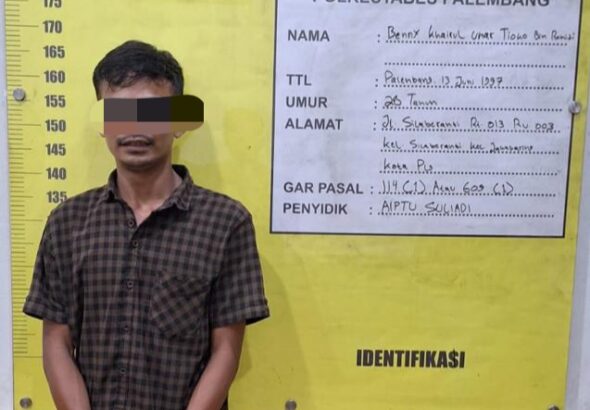 POLRESTABES PALEMBANG
175
170
165
160
155
150
145
140
135
NAMA : Benny Khairul Umar
TTL : Palembang, 13 Juni 1997
UMUR : Tahun
ALAMAT : Jl. Rt. 013 Rw. 003
kel. kec.
Kota Plg
GAR PASAL : 114 (1) Atau 609 (1)
PENYIDIK : AIPTU SULIADI
IDENTIFIKASI